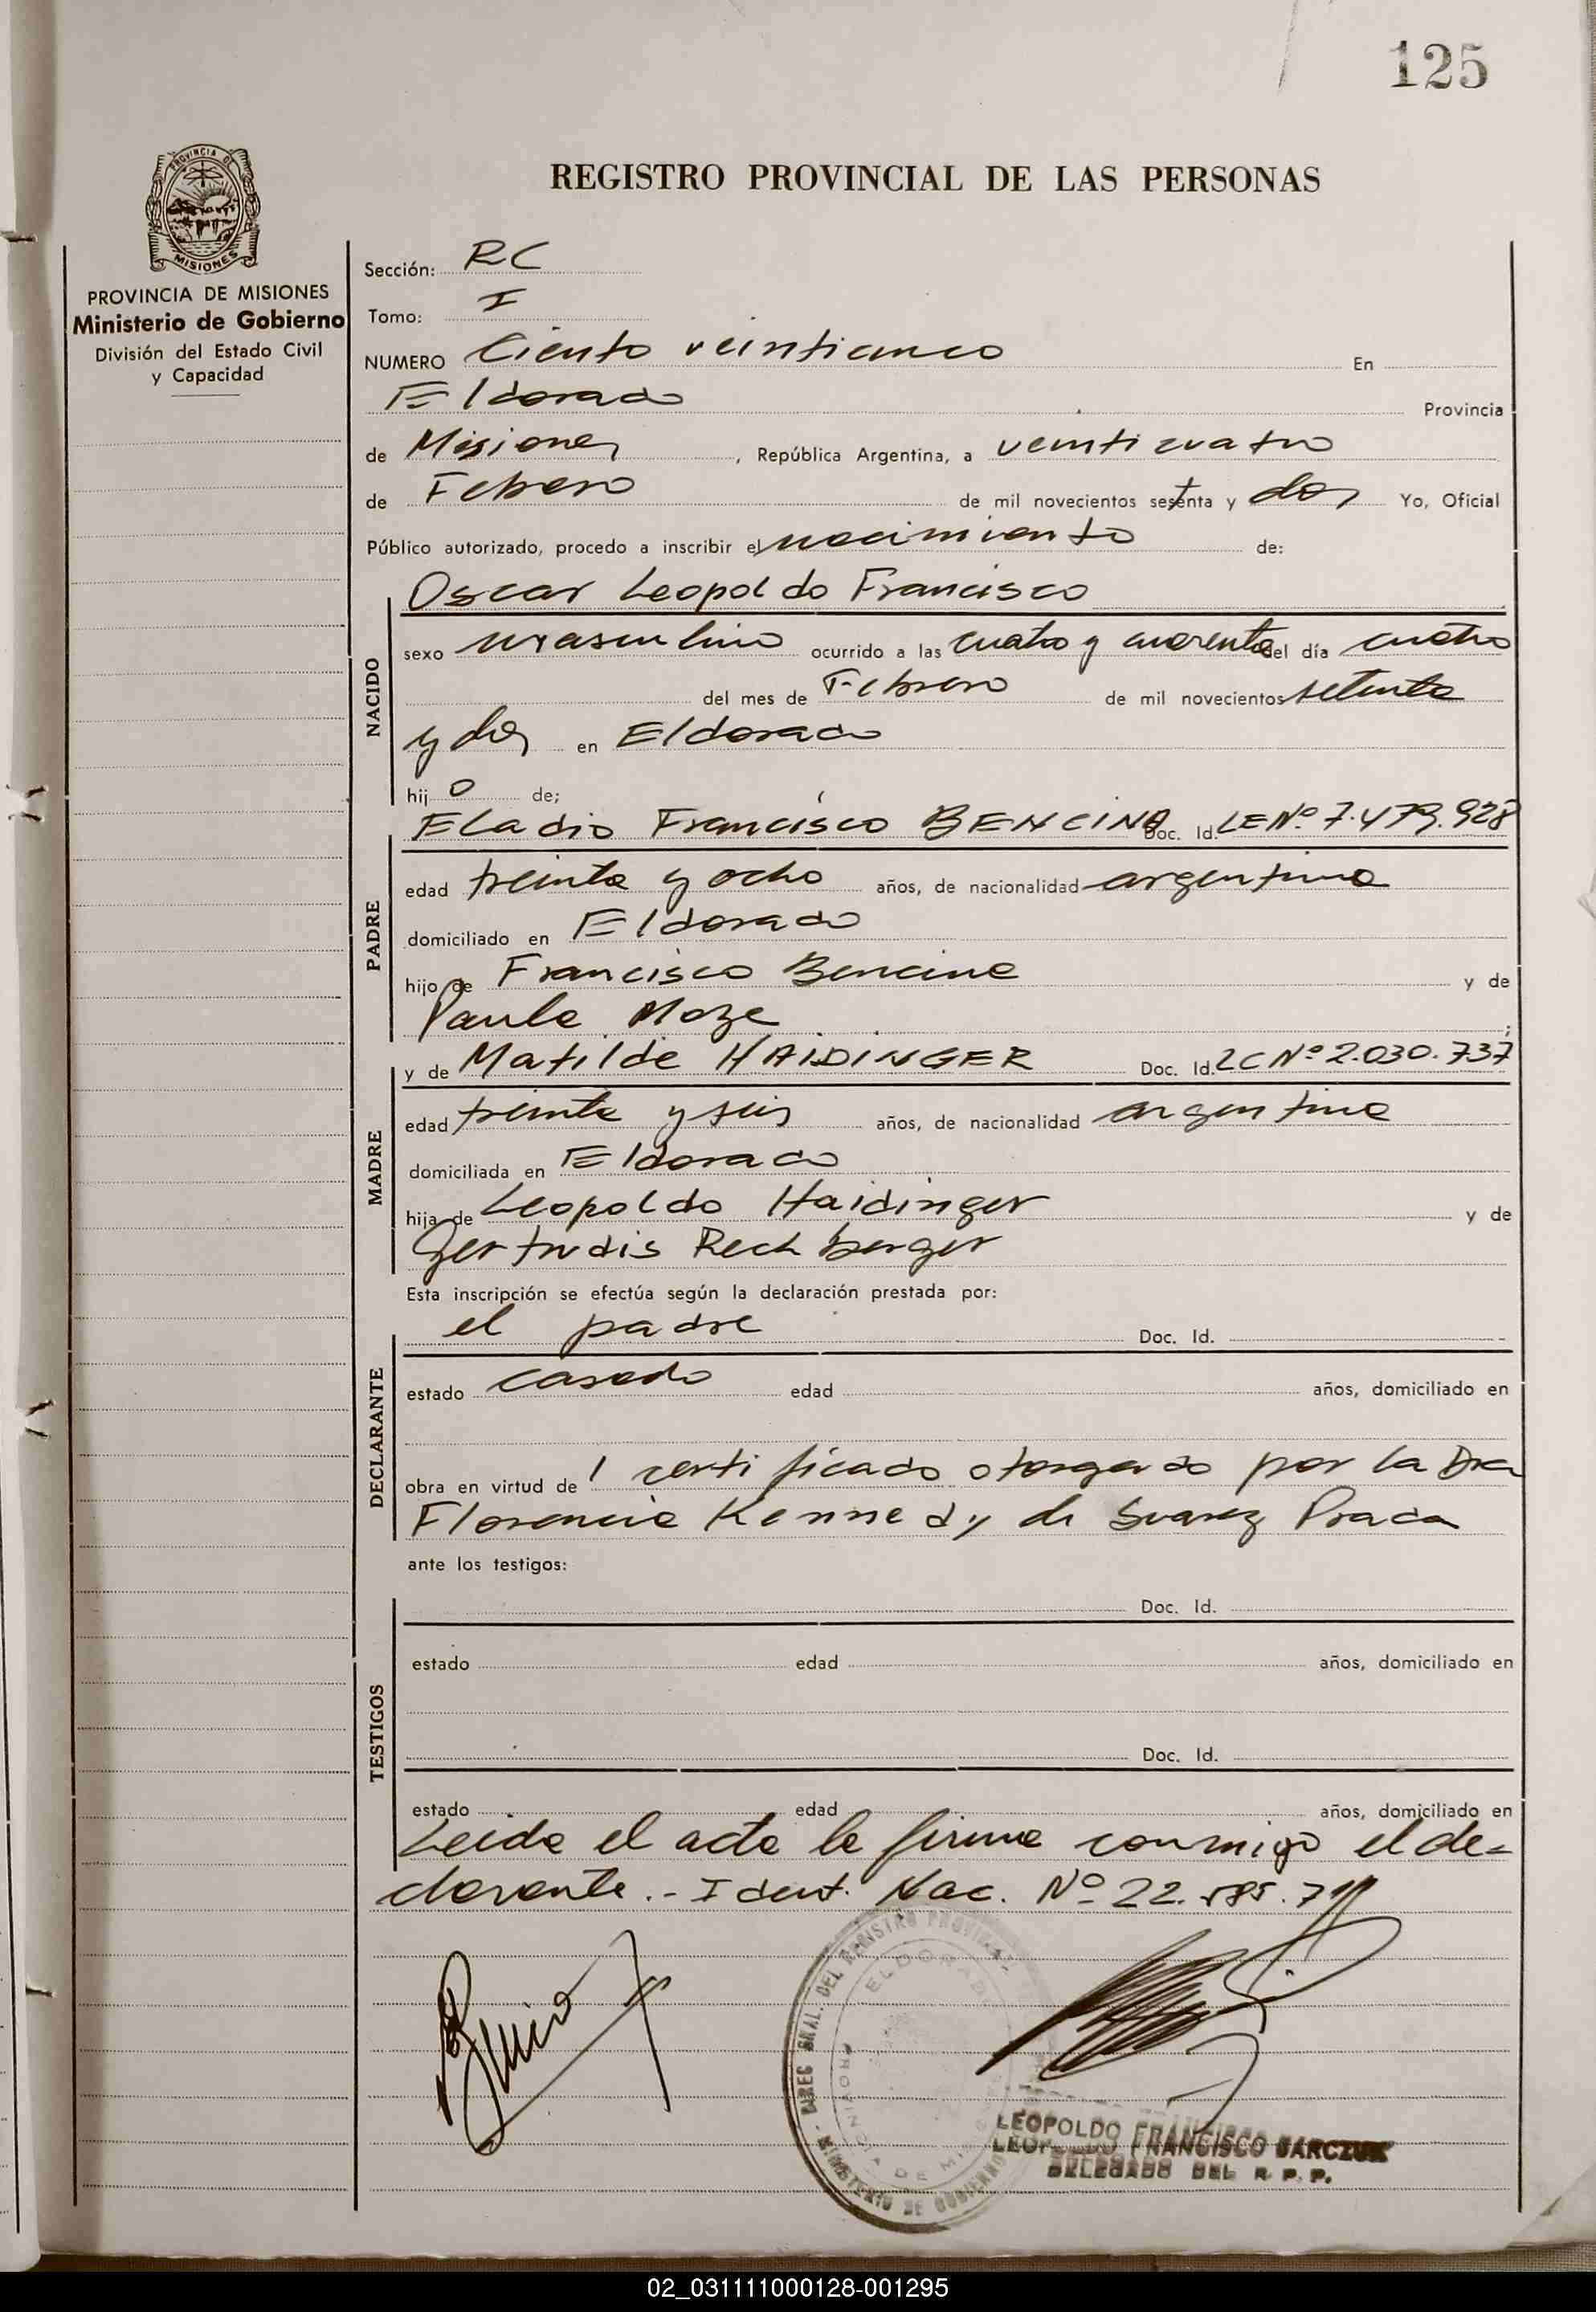 125
REGISTRO PROVINCIAL DE LAS PERSONAS
PROVINCIA DE MISIONES
PROVINCIA DE MISIONES
Ministerio de Gobierno
División del Estado Civil
y Capacidad
Sección: RC
Tomo: I
NUMERO Ciento veinticinco En
Eldorado Provincia
de Misiones, República Argentina, a veinticuatro
de Febrero de mil novecientos setenta y dos Yo, Oficial
Público autorizado, procedo a inscribir el nacimiento de:
Oscar Leopoldo Francisco
NACIDO
sexo masculino ocurrido a las cuatro y cuarenta del día cuatro
del mes de Febrero de mil novecientos setenta
y dos en Eldorado
hijo de;
Eladio Francisco BENCINA Doc. Id. LE Nº 7.479.928
PADRE
edad treinta y ocho años, de nacionalidad argentina
domiciliado en Eldorado
hijo de Francisco Bencina y de
Paula Moze;
y de Matilde HAIDINGER Doc. Id. LC Nº 2.030.737
MADRE
edad treinta y seis años, de nacionalidad argentina
domiciliada en Eldorado
hija de Leopoldo Haidinger y de
Gertrudis Rechberger
Esta inscripción se efectúa según la declaración prestada por:
el padre Doc. Id.
DECLARANTE
estado casado edad años, domiciliado en
obra en virtud de 1 certificado otorgado por la Dra
Florencia Kennedy de Suarez Prada
ante los testigos:
Doc. Id.
TESTIGOS
estado edad años, domiciliado en
Doc. Id.
estado edad años, domiciliado en
Leida el acta la firma conmigo el de=
clarante.- Ident. Nac. Nº 22.
DIREC. GRAL. DEL REGISTRO PROVINCIAL
MINISTERIO DE GOBIERNO
ELDORADO
PROVINCIA DE MISIONES
LEOPOLDO FRANCISCO SARCZUK
DELEGADO DEL R. P. P.
02_031111000128-001295